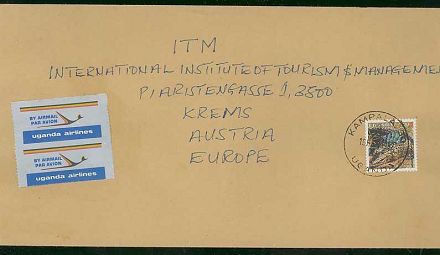 ITM
INTERNATIONAL INSTITUTE OF TOURISM & MANAGEMEN
PIARISTENGASSE 1, 3500
KREMS
AUSTRIA
EUROPE
BY AIRMAIL
PAR AVION
uganda airlines
BY AIRMAIL
PAR AVION
uganda airlines
KAMPALA
UGANDA